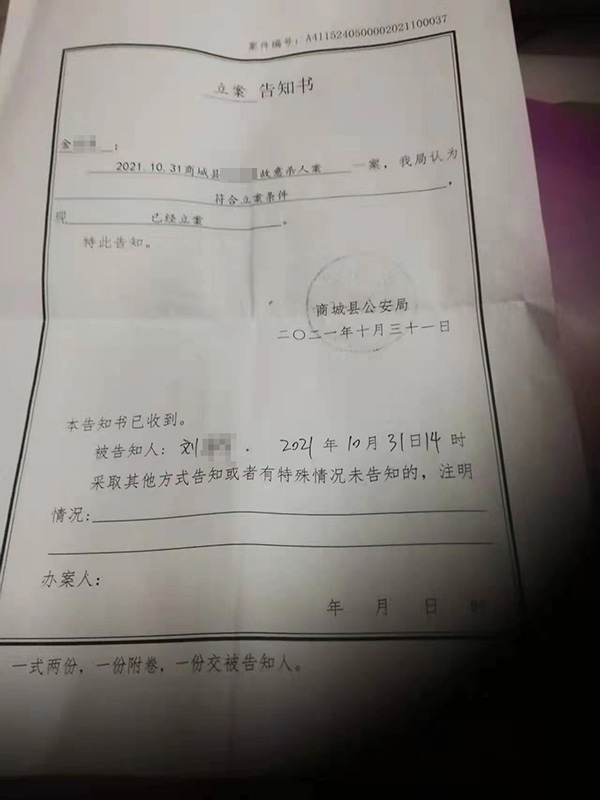 案件编号：A4115240500002021100037
立案 告知书
金 ：
2021.10.31商城县 故意杀人案 一案，我局认为
符合立案条件 ，
现 已经立案 。
特此告知。
商城县公安局
二〇二一年十月三十一日
本告知书已收到。
被告知人：刘 . 2021年10月31日14时
采取其他方式告知或者有特殊情况未告知的，注明
情况：
办案人：
年 月 日 时
一式两份，一份附卷，一份交被告知人。